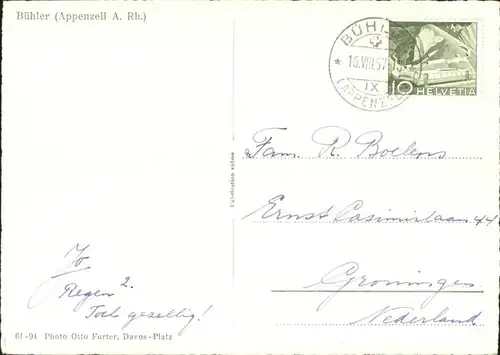 Bühler (Appenzell A. Rh.)
BÜHL
16.VIII.57.15
IX
(APPENZ
10 HELVETIA
Fabrication suisse
Fam. R. Boelens
Ernst Casimirlaan 44
Groningen
Nederland
Regen 2.
Toch gezellig!
61-94 Photo Otto Furter, Davos-Platz